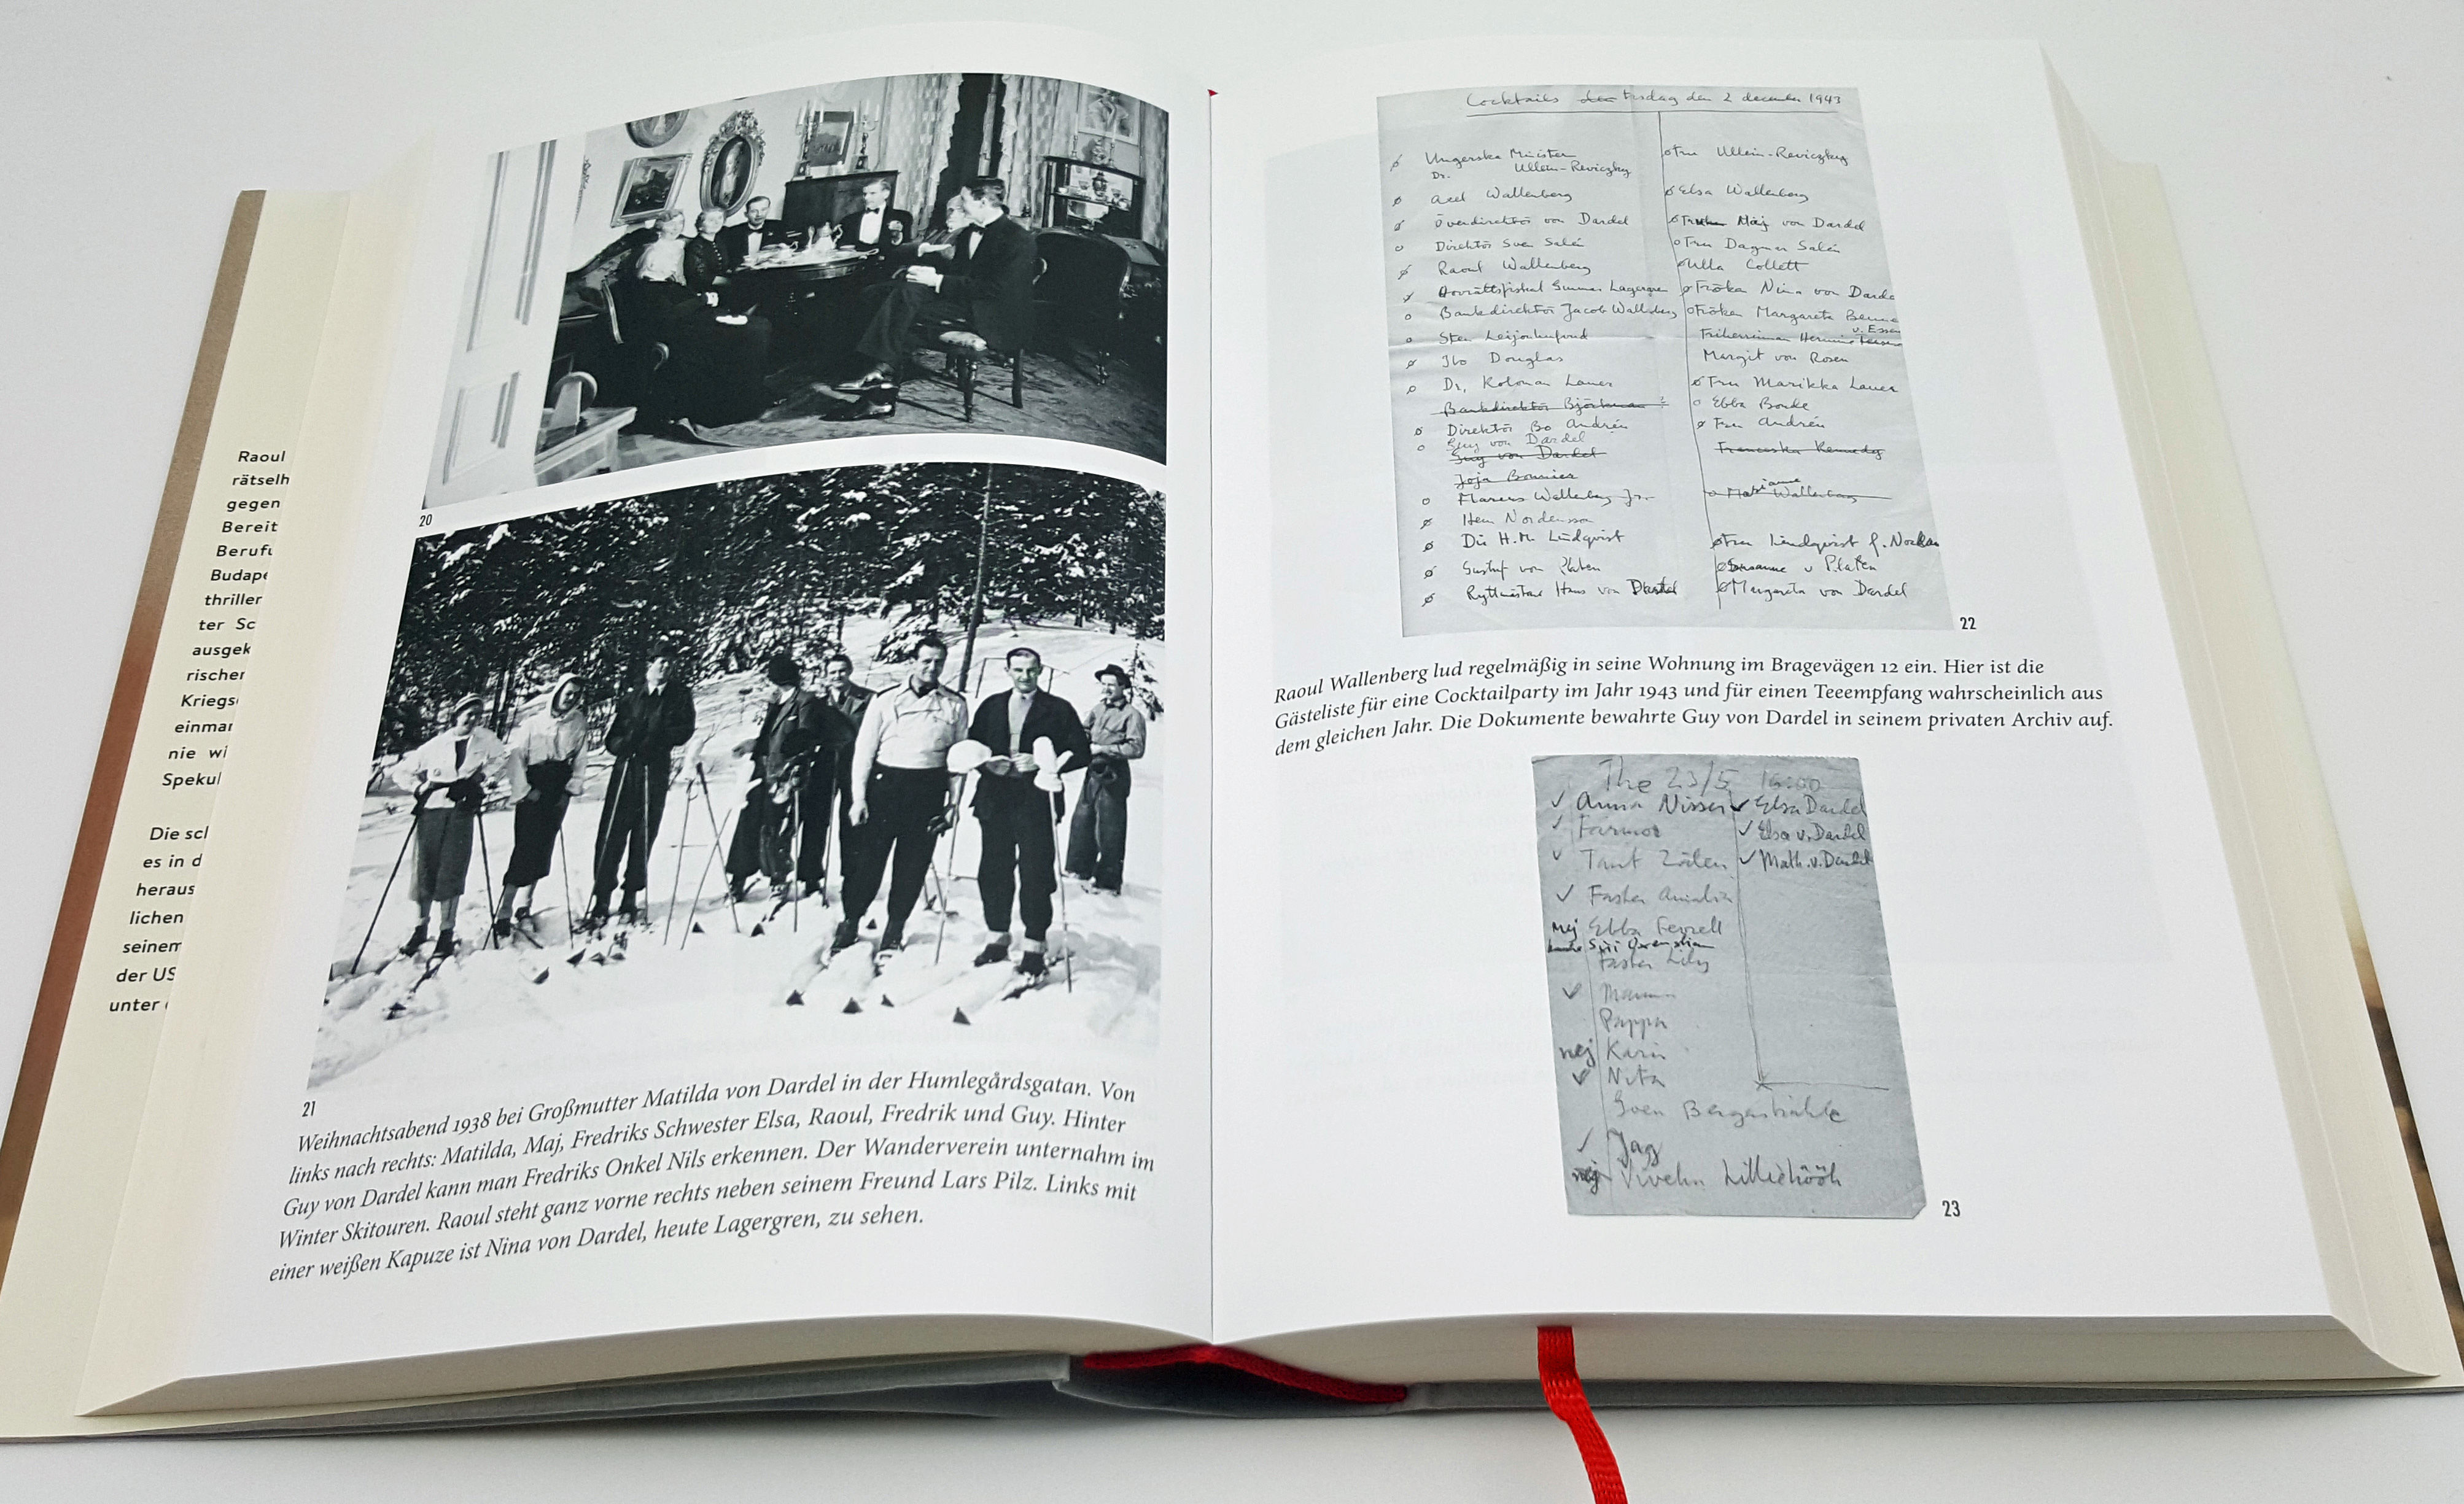 Raoul
rätselh
gegen
Bereit
Berufu
Budape
thriller
ter Sc
ausgek
rischer
Kriegs
einmar
nie wi
Spekul
Die scl
es in d
heraus
lichen
seinem
der US
unter
20
21
Weihnachtsabend 1938 bei Großmutter Matilda von Dardel in der Humlegårdsgatan. Von
links nach rechts: Matilda, Maj, Fredriks Schwester Elsa, Raoul, Fredrik und Guy. Hinter
Guy von Dardel kann man Fredriks Onkel Nils erkennen. Der Wanderverein unternahm im
Winter Skitouren. Raoul steht ganz vorne rechts neben seinem Freund Lars Pilz. Links mit
einer weißen Kapuze ist Nina von Dardel, heute Lagergren, zu sehen.
Cocktails den 2 december 1943
Ungerska Ministern Fru Ullein-Reviczky
Dr. Ullein-Reviczky
Axel Wallenberg Elsa Wallenberg
Överdirektör von Dardel Maj von Dardel
Direktör Sven Salén Fru Dagmar Salén
Raoul Wallenberg Ulla Collett
Gunnar Lagergren Fröken Nina von Darde
Bankdirektör Jacob Wallenberg Fröken Margareta
v. Essen
Sten Leijonhufvud Friherrinnan
Ibo Douglas Margit von Rosen
Dr. Koloman Lauer Fru Marikka Lauer
Bankdirektör Björkman ? Ebba Bonde
Direktör Bo Andrén Fru Andrén
Guy von Dardel
Guy von Dardel Kennedy
Joja Bonnier
Marcus Wallenberg Jr. Marianne Wallenberg
Herr Nordenson
Dir H.M. Lindqvist Fru Lindqvist f.
Gustaf von Platen v Platen
Ryttmästare Hans von Dardel Margareta von Dardel
22
Raoul Wallenberg lud regelmäßig in seine Wohnung im Bragevägen 12 ein. Hier ist die
Gästeliste für eine Cocktailparty im Jahr 1943 und für einen Teeempfang wahrscheinlich aus
dem gleichen Jahr. Die Dokumente bewahrte Guy von Dardel in seinem privaten Archiv auf.
The 23/5 16:00
Anna Nisser Elsa Dardel
Farmor Elsa v. Dardel
Tant Math. v. Dardel
Faster Amalia
Nej Ebba
Siri Oxenstierna
Faster Lily
Mamma
Pappa
nej Karin
Nita
Sven Bergenstråhle
Jag
nej Viveka Lilliehöök
23